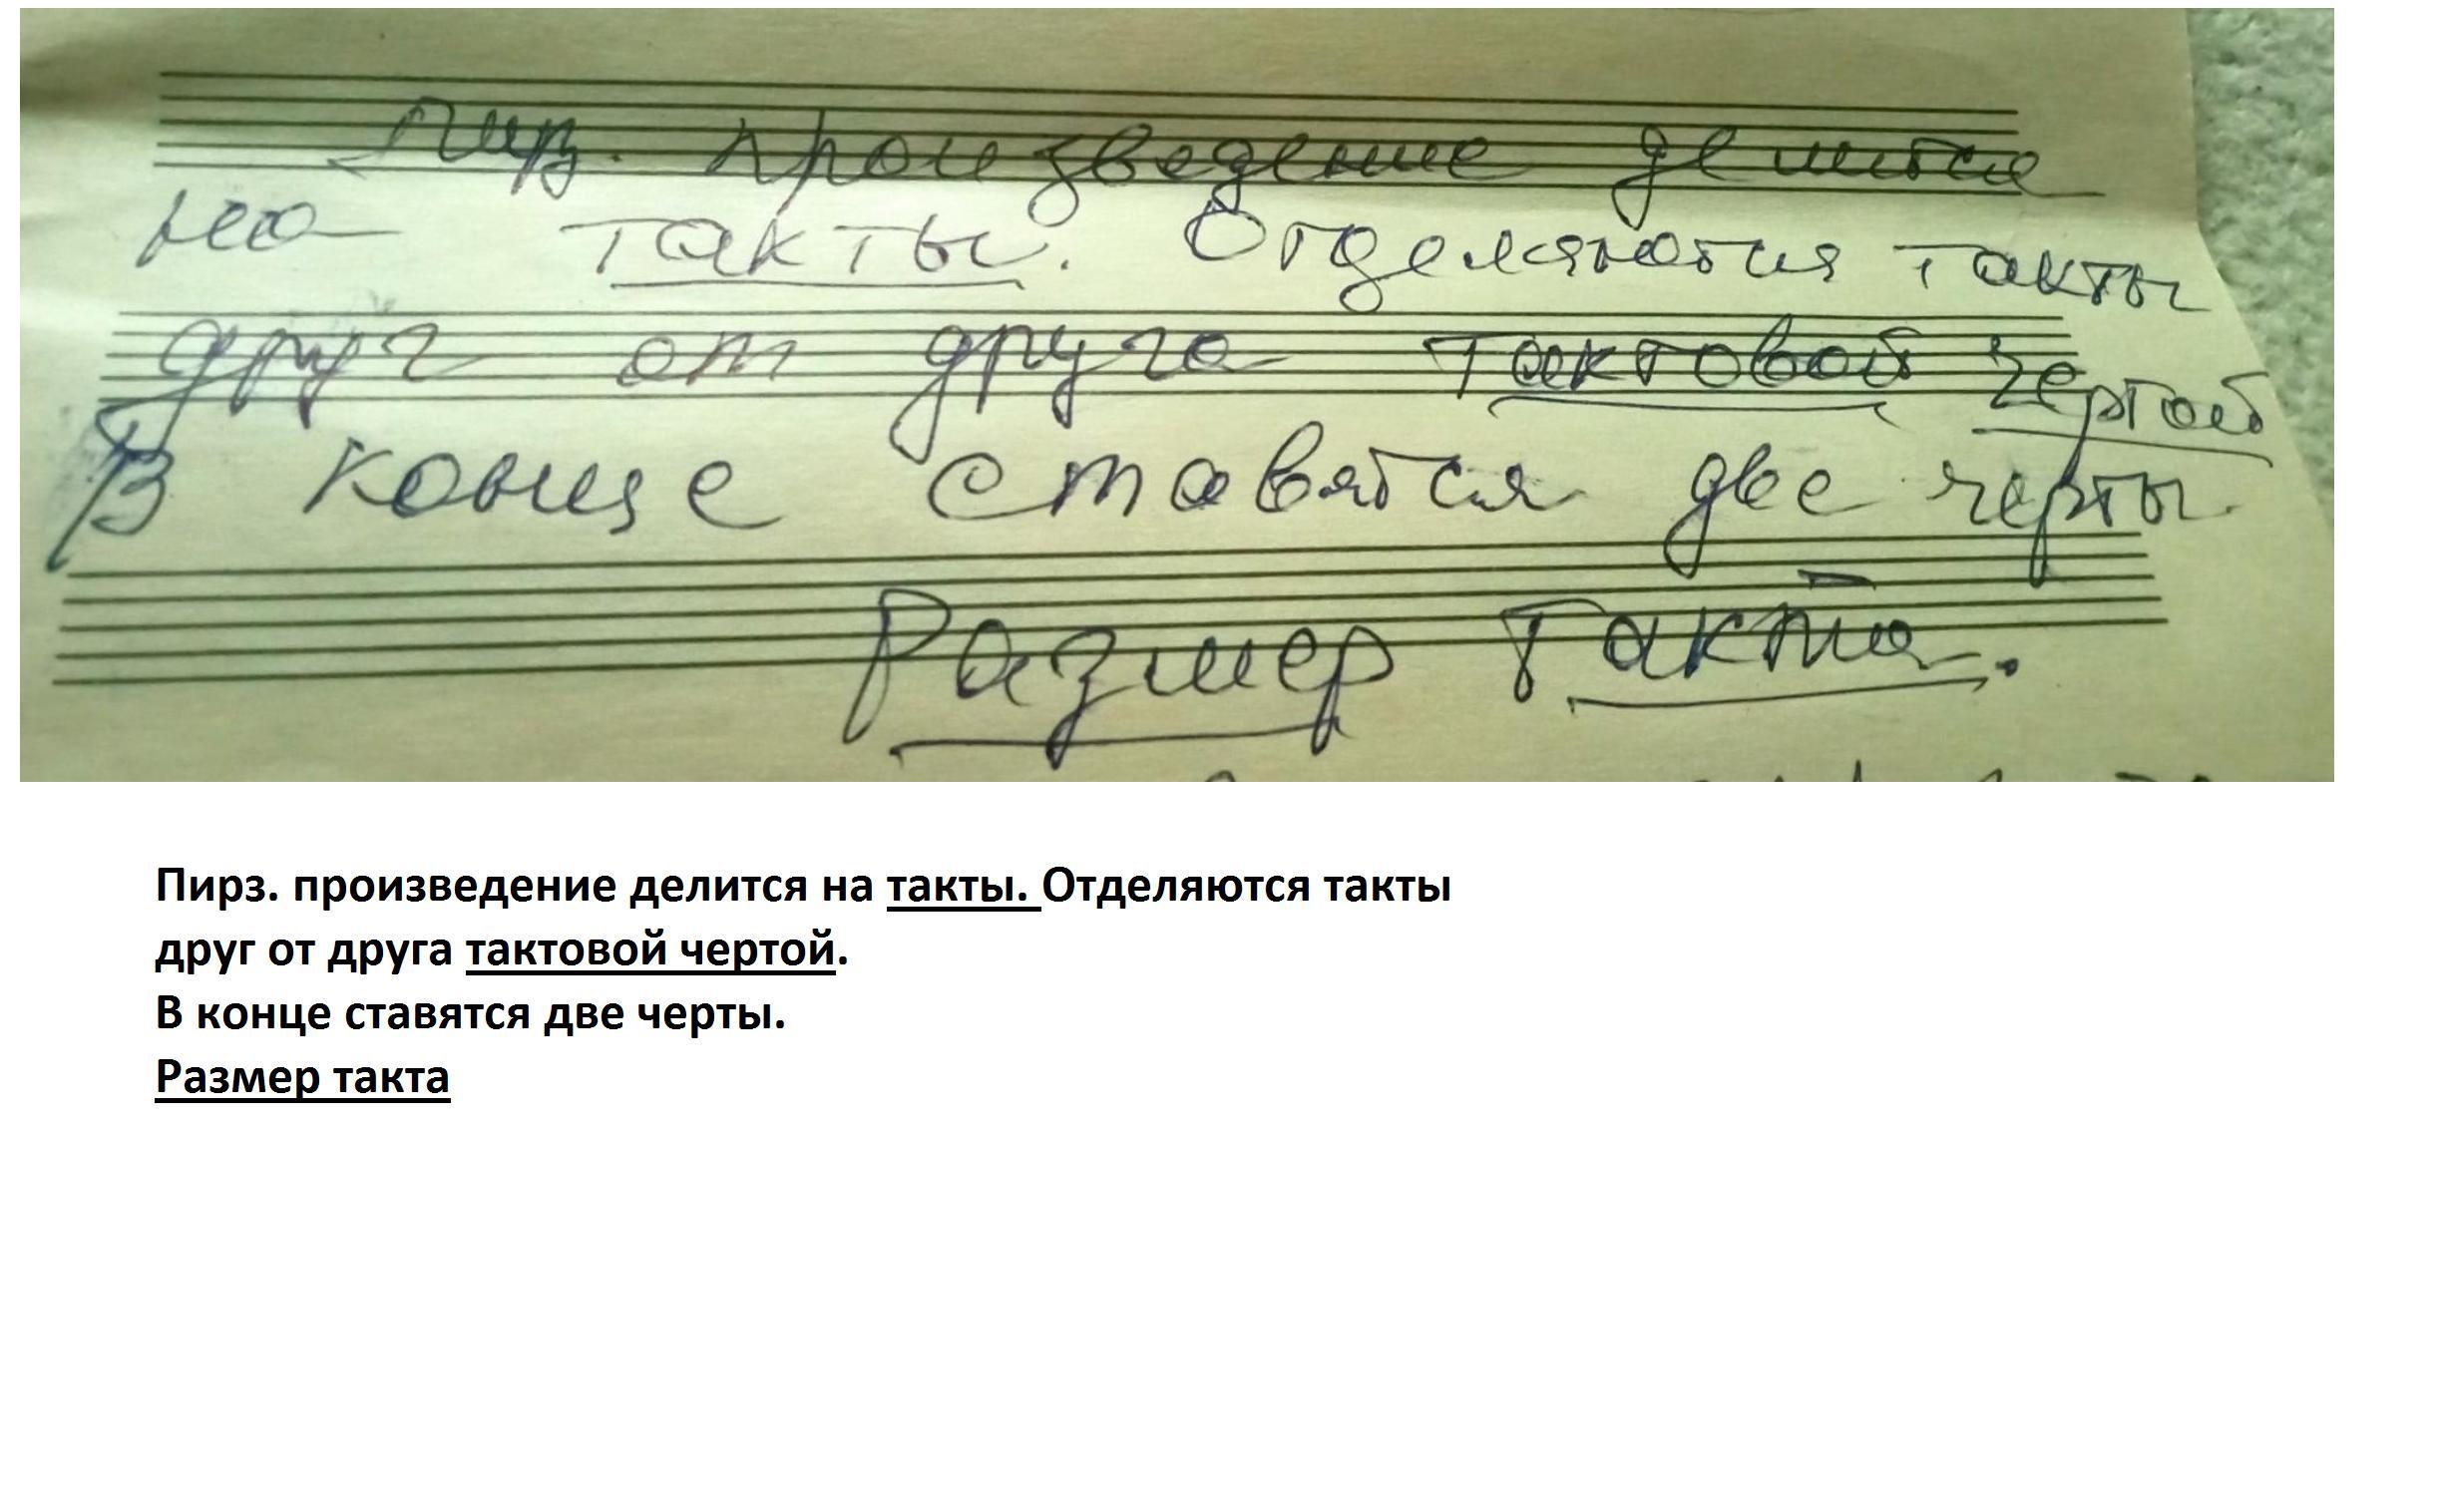 произведение делится
на такты. Отделяются такты
друг от друга тактовой чертой
В конце ставятся две черты.
Размер такта.
Пирз. произведение делится на такты. Отделяются такты
друг от друга тактовой чертой.
В конце ставятся две черты.
Размер такта